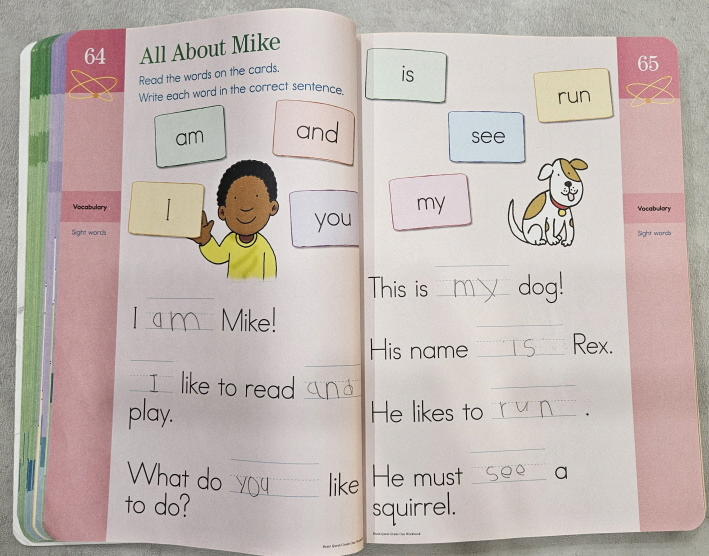 64
All About Mike
Read the words on the cards.
Write each word in the correct sentence.
am
and
I
you
Vocabulary
Sight words
I am Mike!
I like to read and
play.
What do you like
to do?
65
is
run
see
my
Vocabulary
Sight words
This is my dog!
His name is Rex.
He likes to run .
He must see a
squirrel.